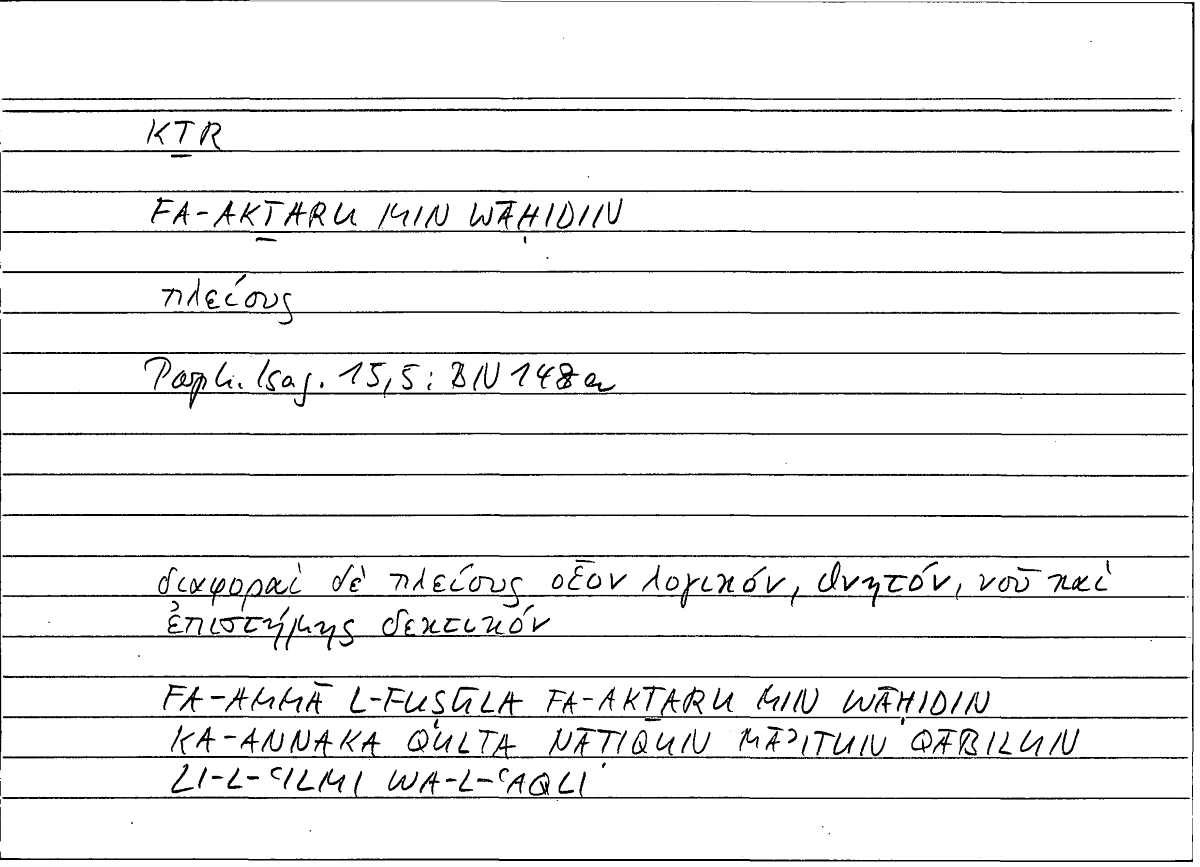 KṮR
FA-AKṮARU MIN WĀḤIDIIN
πλείους
Porph. Isag. 15,5: BN 148a
διαφοραὶ δὲ πλείους οἷον λογικόν, θνητόν, νοῦ καὶ
ἐπιστήμης δεκτικόν
FA-AMMĀ L-FUṢŪLA FA-AKṮARU MIN WĀḤIDIN
KA-ANNAKA QULTA NĀṬIQUN MĀʾITUN QĀBILUN
LI-L-ʿILMI WA-L-ʿAQLI